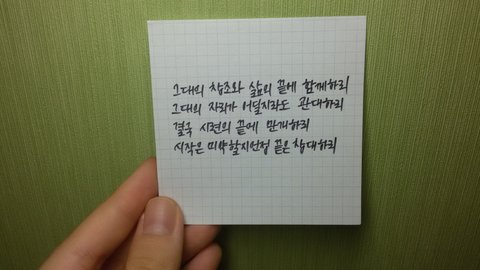 그대의 창조와 삶의 끝에 함께하리
그대의 자리가 어딜지라도 관대하리
결국 시련의 끝에 만개하리
시작은 미약할지언정 끝은 창대하리